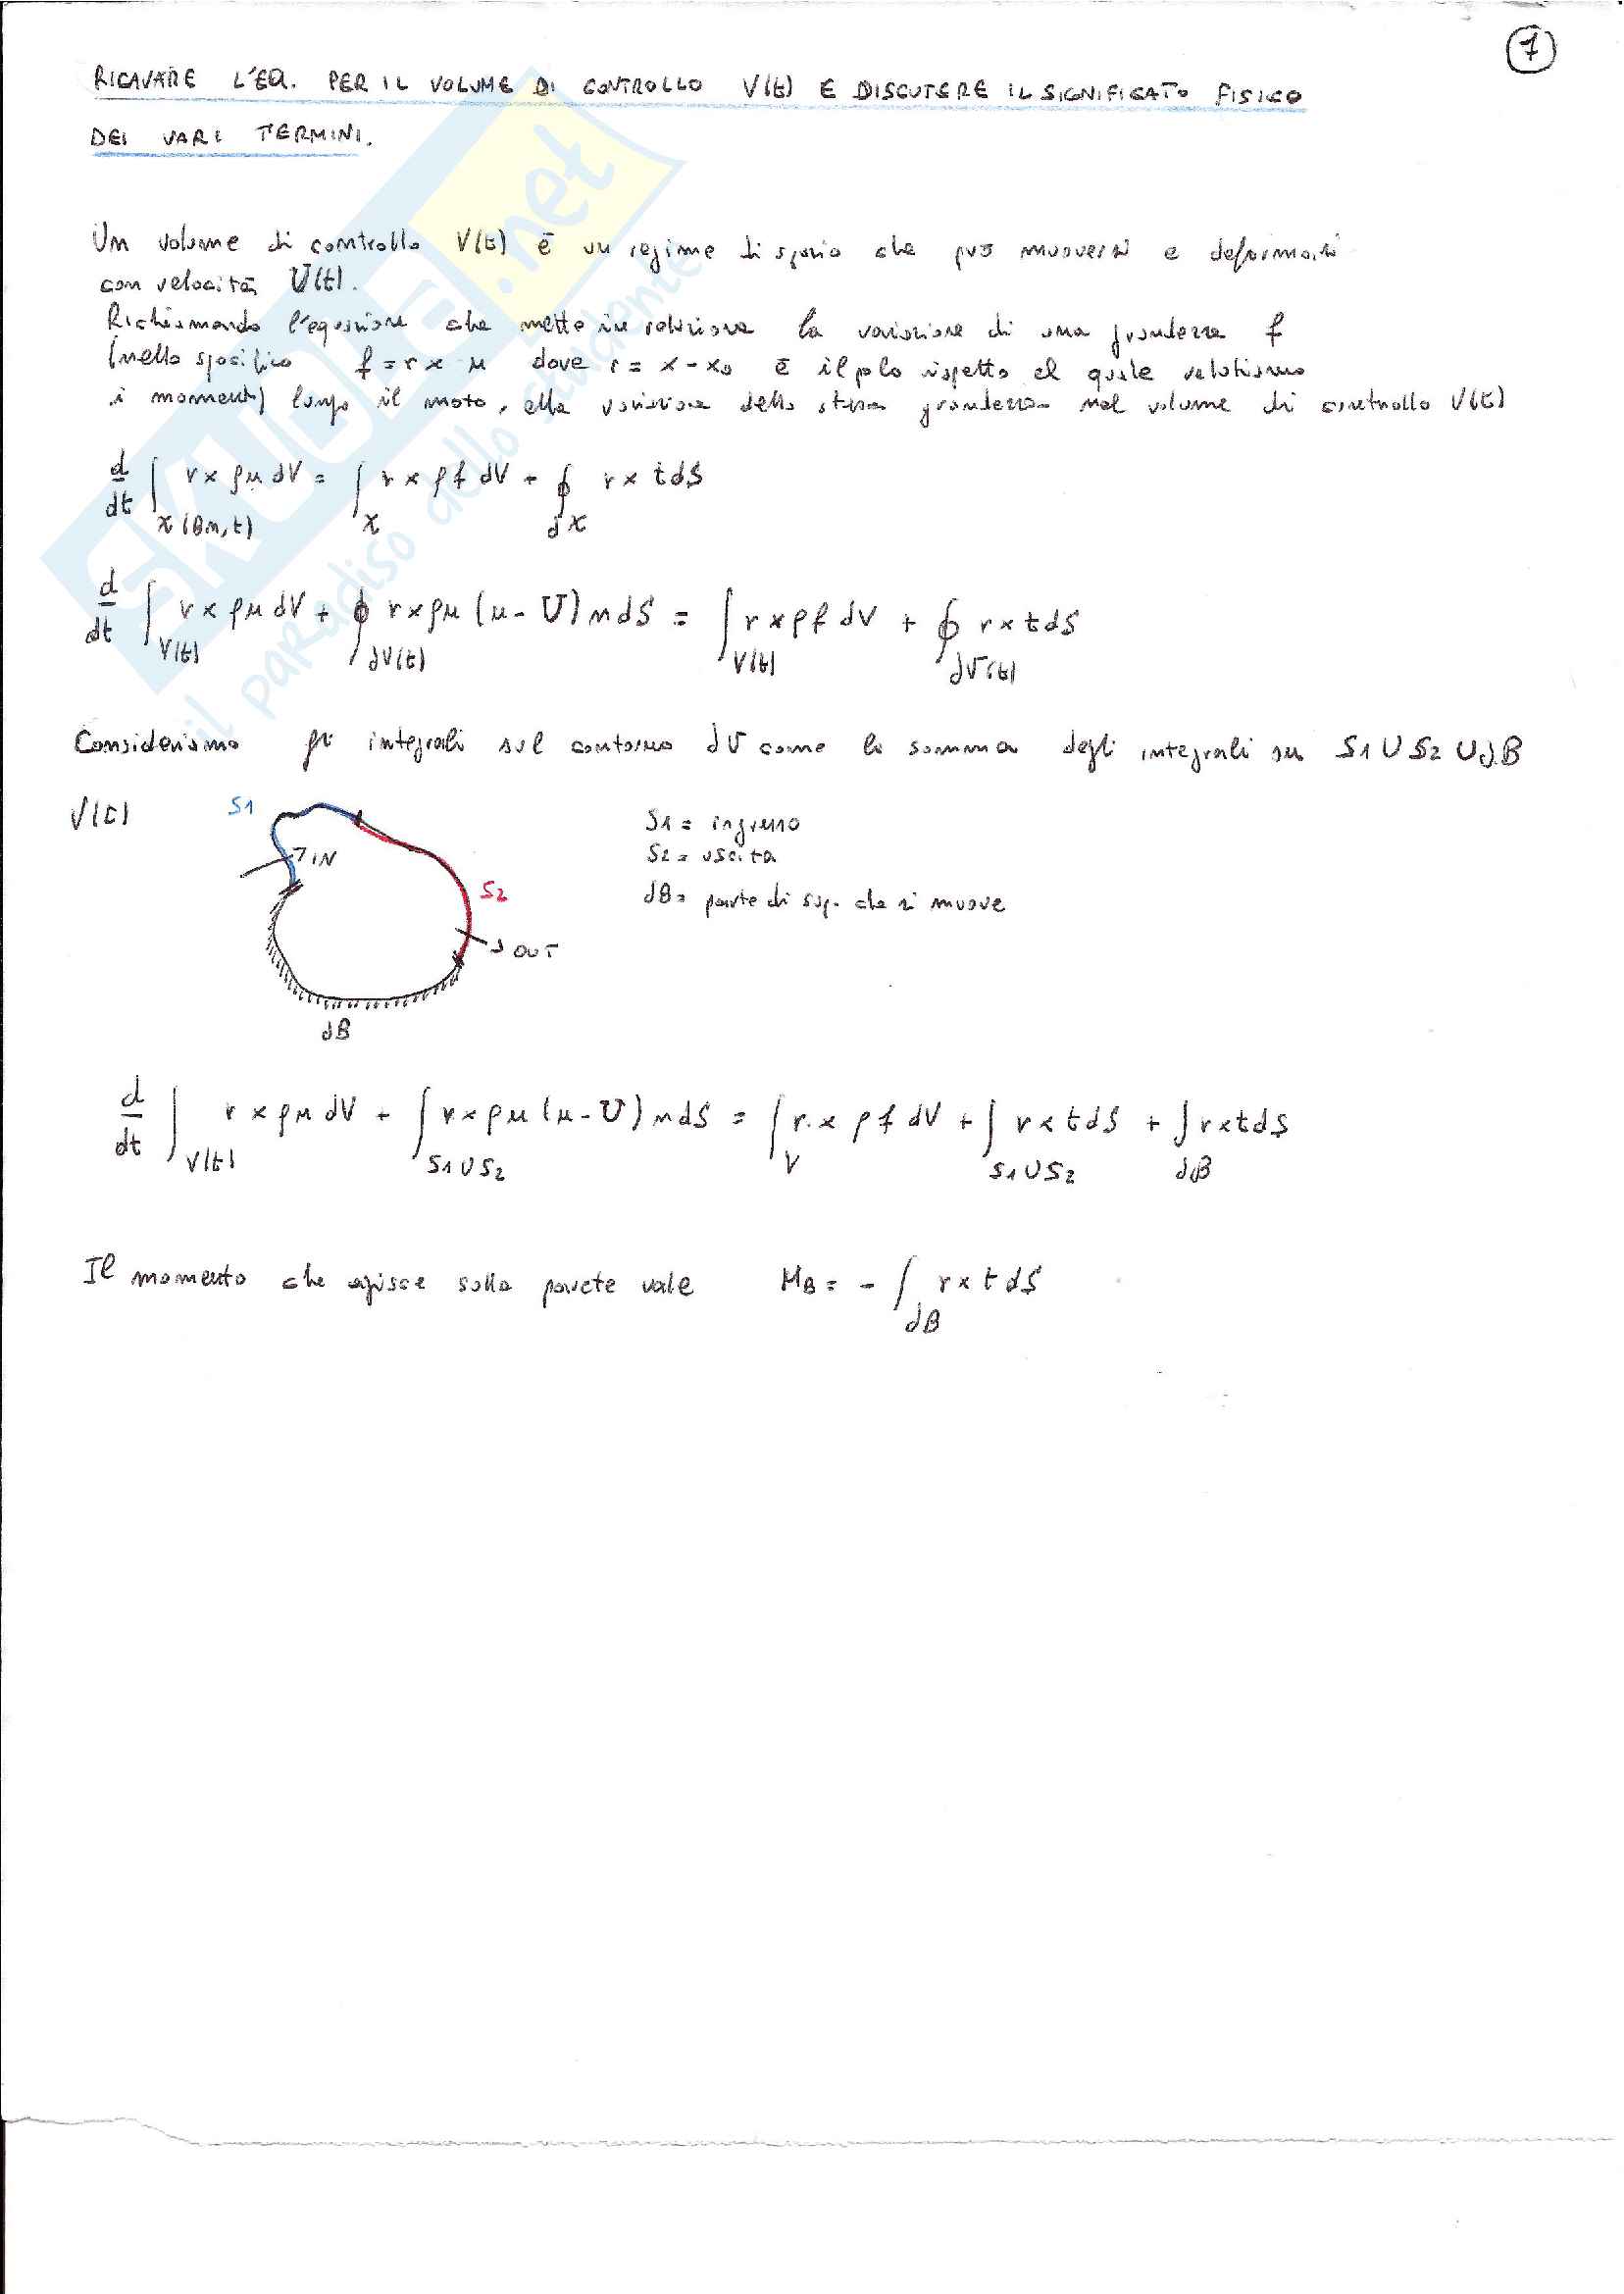 7
RICAVARE L'EQ. PER IL VOLUME DI CONTROLLO V(t) E DISCUTERE IL SIGNIFICATO FISICO
DEI VARI TERMINI.
Un volume di controllo V(t) è un regime di spazio che può muoversi e deformarsi
con velocità U(t).
Richiamando l'equazione che mette in relazione la variazione di una grandezza f
(nello specifico f = r × u dove r = x - x0 è il polo rispetto al quale relativismo
i momenti) lungo il moto, alla variazione della stessa grandezza nel volume di controllo V(t)
d/dt ∫χ(Bm,t) r × ρu dV = ∫χ r × ρf dV + ∮∂χ r × t dS
d/dt ∫V(t) r × ρu dV + ∮∂V(t) r × ρu (u - U) n dS = ∫V(t) r × ρf dV + ∮∂V(t) r × t dS
Consideriamo gli integrali sul contorno ∂V come la somma degli integrali su S1 U S2 U ∂B
V(t)
S1
IN
S2
OUT
∂B
S1 = ingresso
S2 = uscita
∂B = parte di sup. che si muove
d/dt ∫V(t) r × ρu dV + ∫S1 U S2 r × ρu (u - U) n dS = ∫V r × ρf dV + ∫S1 U S2 r × t dS + ∫∂B r × t dS
Il momento che agisce sulla parete vale MB = - ∫∂B r × t dS
SKUOLA.net
il paradiso dello studente